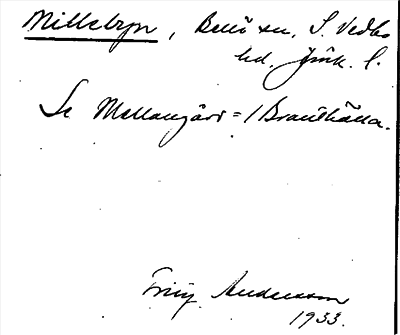 Millebyn, Bellö sn, S. Vedbo
hd. Jönk. l.
Se Mellangård = / Brantkälla.
Andersson
1933.